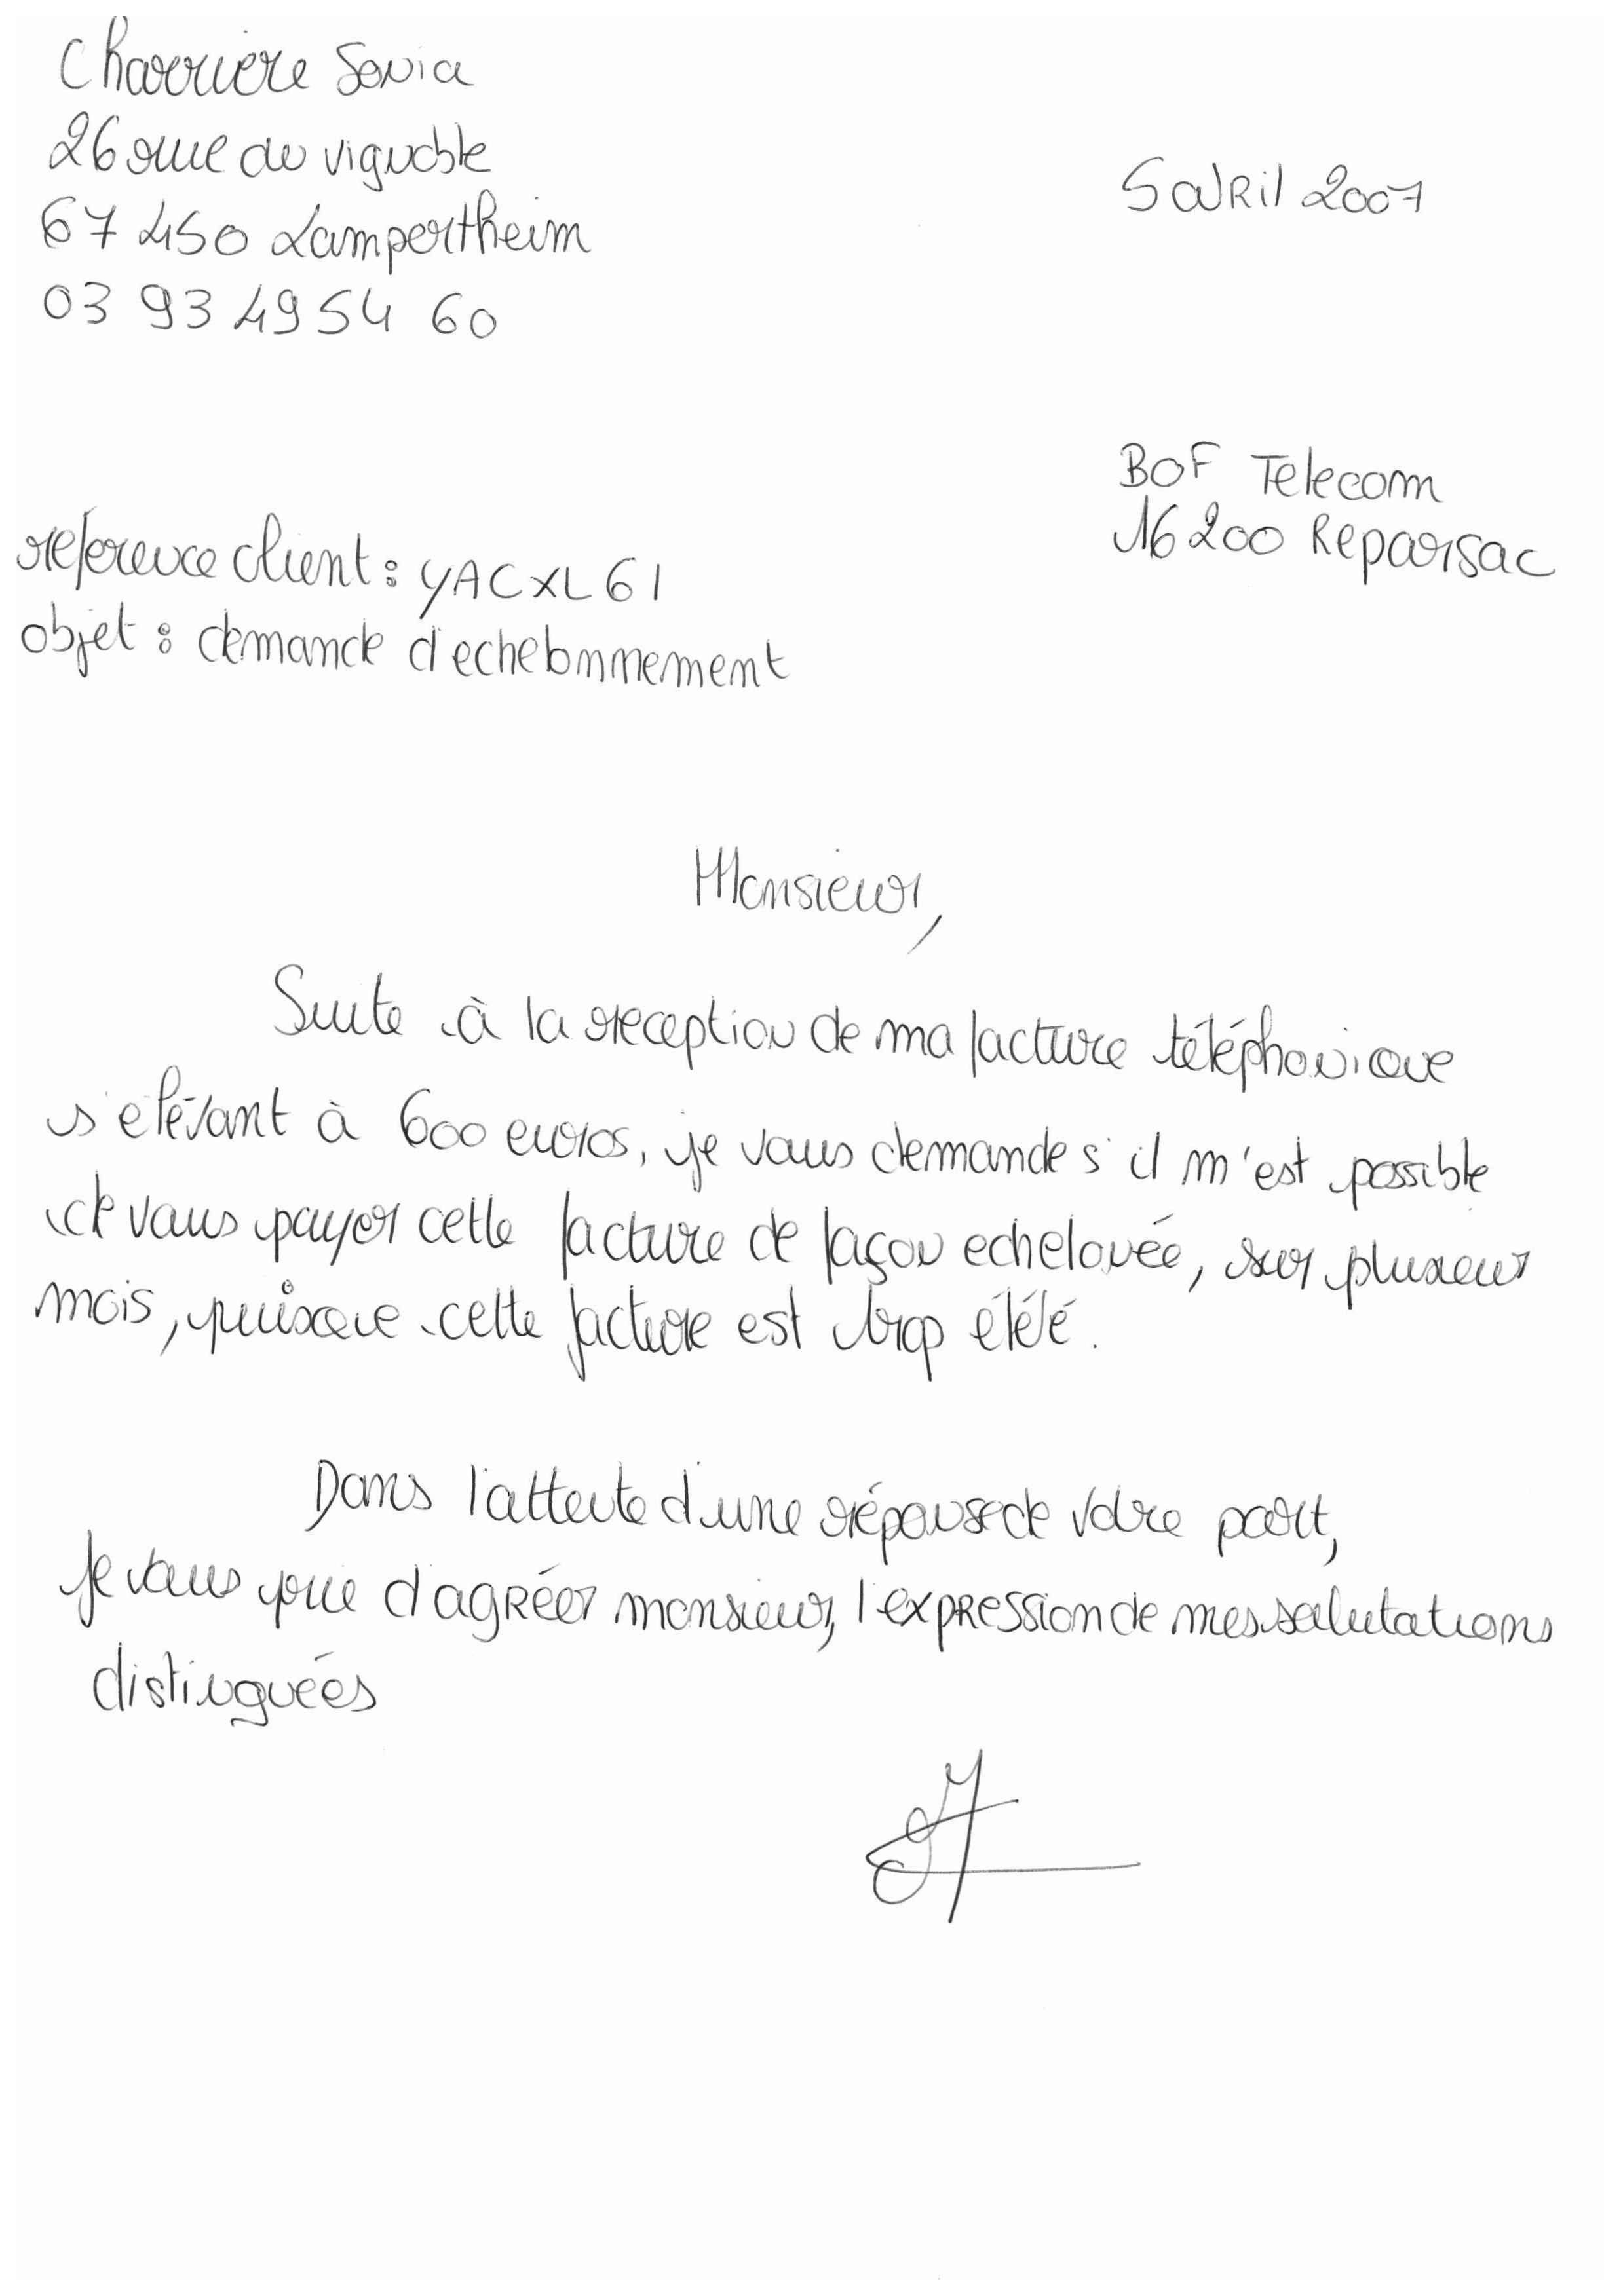 Charriere Sonia
26 rue du vignoble
67 450 Lampertheim
03 93 49 54 60
5 avril 2007
BOF Telecom
16 200 Reparsac
reference client : YACXL61
objet : demande d'echelonnement
Monsieur,
Suite à la reception de ma facture téléphonique
s'elévant à 600 euros, je vous demande s'il m'est possible
de vous payer cette facture de façon echelonée, sur plusieur
mois, puisque cette facture est trop élévé.
Dans l'attente d'une réponse de votre part,
je vous prie d'agréer monsieur, l'expression de mes salutations
distinguées